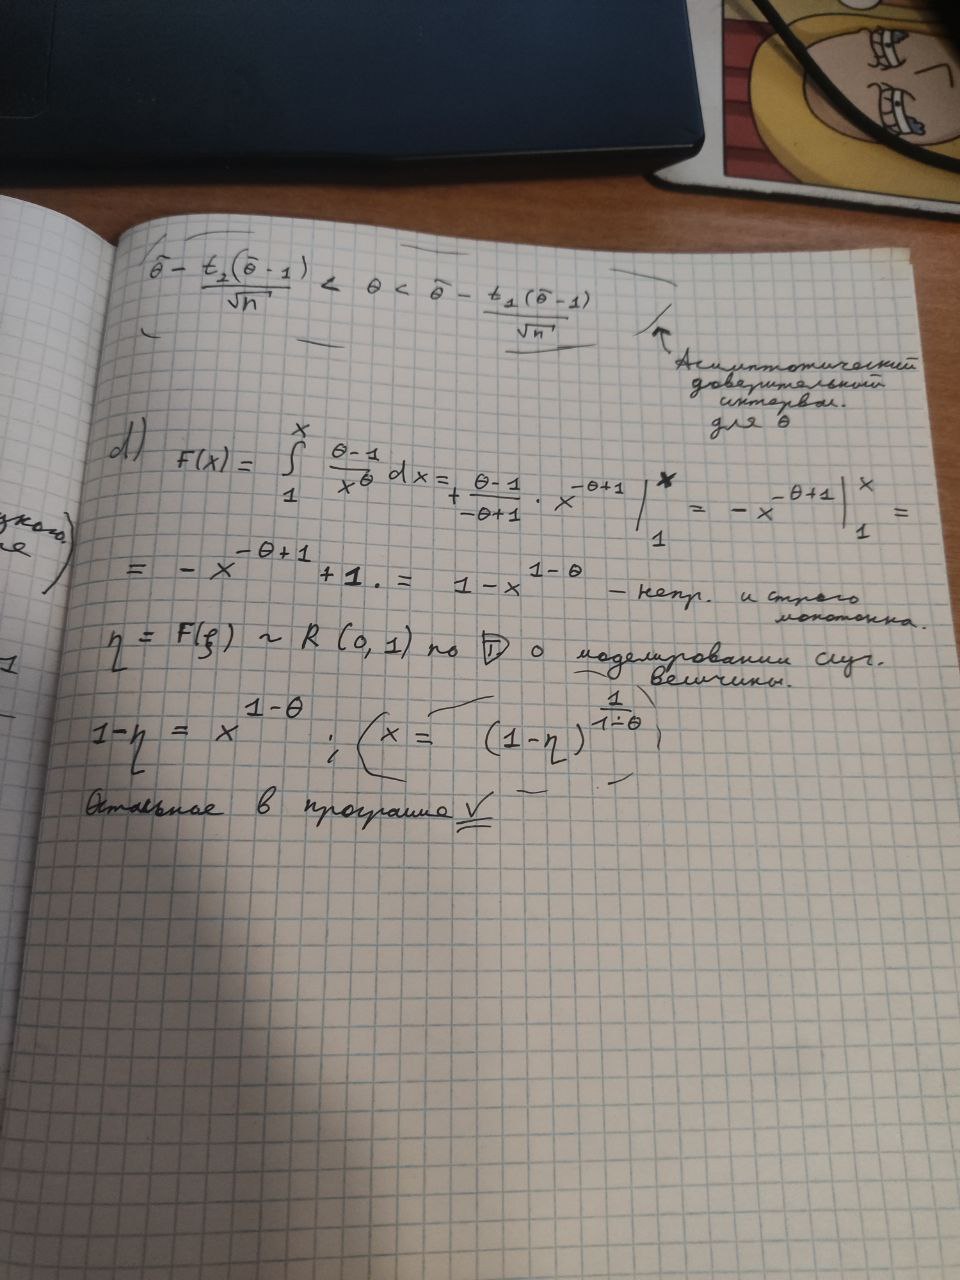 θ̃ - t₂(θ̃-1)/√n < θ < θ̃ - t₁(θ̃-1)/√n
Асимптотический
доверительный
интервал.
для θ
d) F(x) = ∫₁ˣ (θ-1)/x^θ dx = + (θ-1)/(-θ+1) · x^(-θ+1) |₁ˣ = - x^(-θ+1) |₁ˣ =
= - x^(-θ+1) + 1. = 1 - x^(1-θ) - непр. и строго
монотонна.
η = F(ξ) ~ R(0,1) по T о моделировании случ.
величины.
1-η = x^(1-θ) ; x = (1-η)^(1/(1-θ))
Остальное в программе